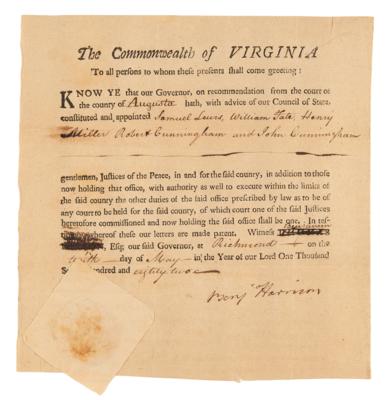 The Commonwealth of VIRGINIA
To all persons to whom these presents shall come greeting:
KNOW YE that our Governor, on recommendation from the court of
the county of Augusta hath, with advice of our Council of State,
constituted and appointed Samuel Lewis, William Tate, Henry
Miller Robert Cunningham and John Cunningham
gentlemen, Justices of the Peace, in and for the said county, in addition to those
now holding that office, with authority as well to execute within the limits of
the said county the other duties of the said office prescribed by law as to be of
any court to be held for the said county, of which court one of the said Justices
heretofore commissioned and now holding the said office shall be one. In tes-
whereof these our letters are made patent. Witness Benjamin
Esq; our said Governor, at Richmond on the
day of May in the Year of our Lord One Thousand
Hundred and eighty two
Benj Harrison